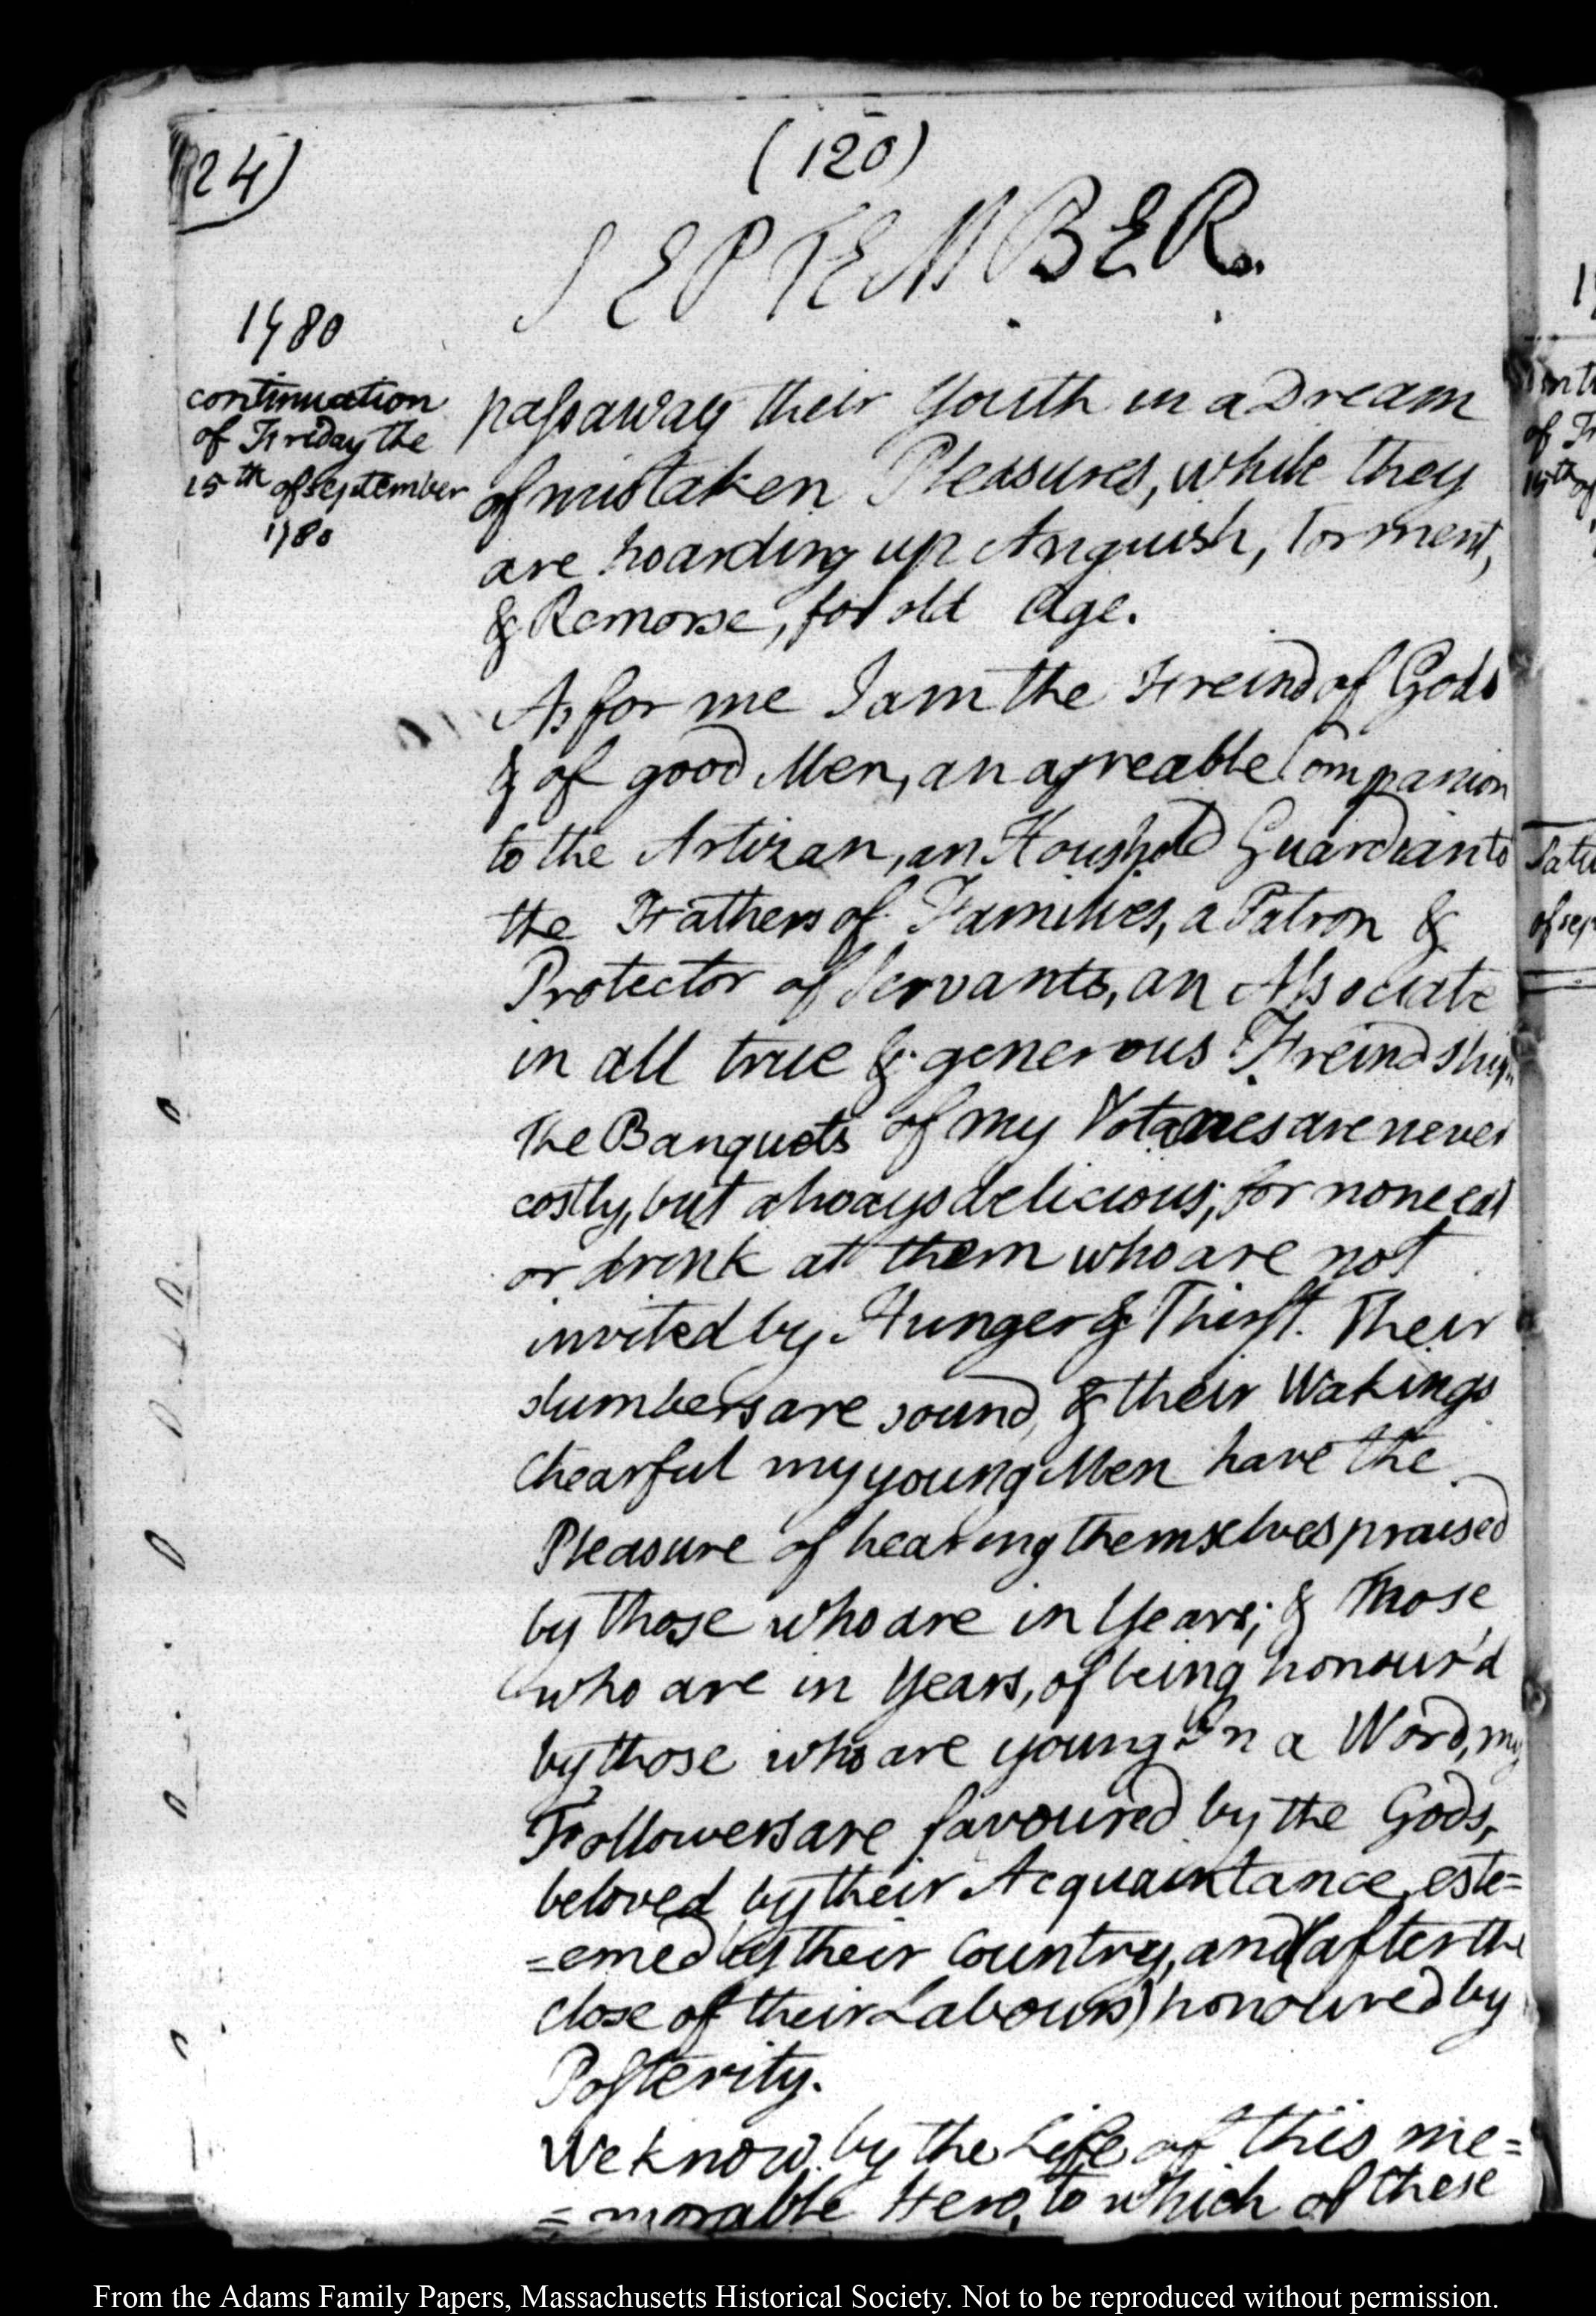 24)
(120)
SEPTEMBER.
1780
continuation
of Friday the
15th of september
1780
passaway their Youth in a Dream
of mistaken Pleasures, while they
are hoarding up Anguish, Torment,
& Remorse, for old Age.
As for me I am the Freind of Gods
& of good Men, an agreable Companion
to the Artizan, an Houshold Guardian to
the Fathers of Families, a Patron &
Protector of Servants, an Associate
in all true & generous Freindship.
The Banquets of my Votaries are never
costly, but always delicious; for none eat
or drink at them who are not
invited by Hunger & Thirst. Their
slumbers are sound, & their Wakings
Chearful my young Men have the
Pleasure of hearing themselves praised
by those who are in Years; & those
who are in Years, of being honour'd
by those who are young In a Word, my
Followers are favoured by the Gods,
beloved by their Acquaintance, este=
=emed by their Country, and (after the
close of their Labours) honoured by
Posterity.
We know by the Life of this me=
=morable Hero, to which of these
of Fr
15th of
Satu
of sep
From the Adams Family Papers, Massachusetts Historical Society. Not to be reproduced without permission.